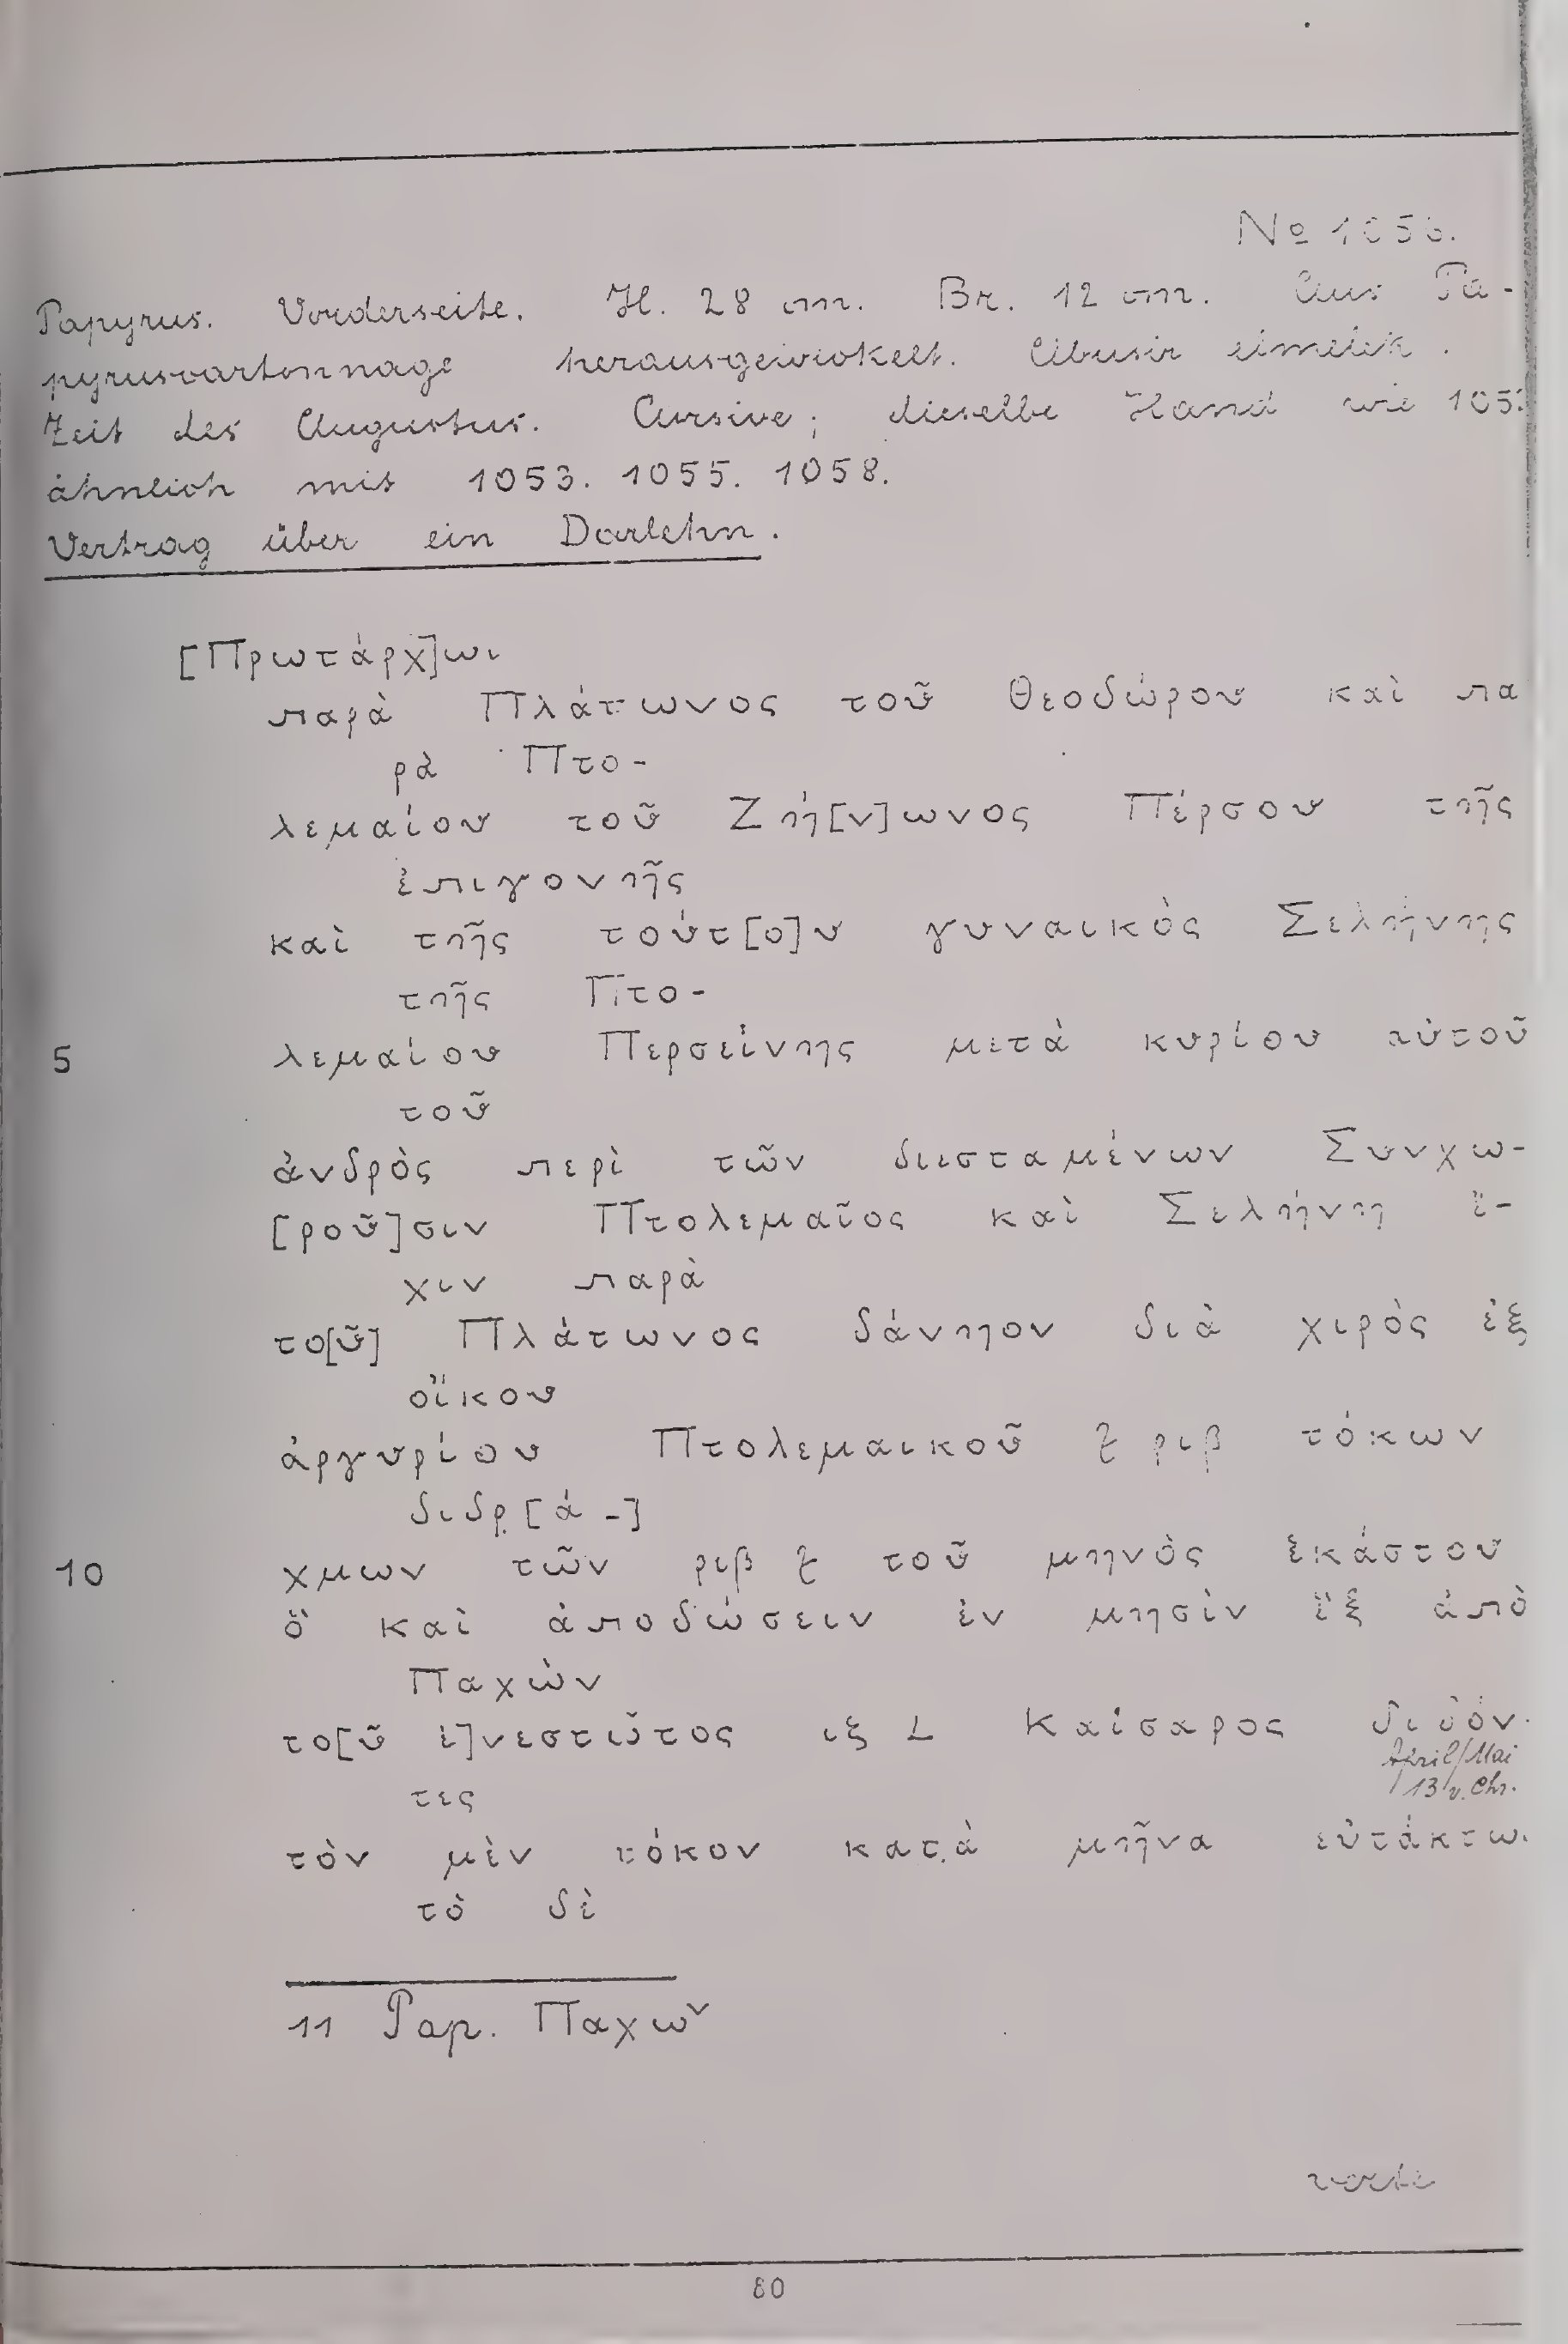 No 1056.
Papyrus. Vorderseite. H. 28 cm. Br. 12 cm. Aus Pa-
pyruscartonnage herausgewickelt. Abusir elmelek.
Zeit des Augustus. Cursive; dieselbe Hand wie
ähnlich mit 1053. 1055. 1058.
Vertrag über ein Darlehn.
[Πρωτάρχ]ωι
παρὰ Πλάτωνος τοῦ Θεοδώρου καὶ πα
ρὰ Πτο-
λεμαίου τοῦ Ζή[ν]ωνος Πέρσου τῆς
ἐπιγονῆς
καὶ τῆς τούτ[ο]υ γυναικὸς Σελήνης
τῆς Πτο-
5 λεμαίου Περσείνης μετὰ κυρίου αὐτοῦ
τοῦ
ἀνδρὸς περὶ τῶν διεσταμένων Συνχω-
[ροῦ]σιν Πτολεμαῖος καὶ Σελήνη ἔ-
χιν παρὰ
το[ῦ] Πλάτωνος δάνηον διὰ χιρὸς ἐξ
οἴκου
ἀργυρίου Πτολεμαικοῦ ⳨ ριβ τόκων
διδρ̣[ά-]
χμων τῶν ριβ ⳨ τοῦ μηνὸς ἑκάστου
10 ὃ καὶ ἀποδώσειν ἐν μησὶν ἓξ ἀπὸ
Παχὼν
το[ῦ ἐ]νεστῶτος ιξ L Καίσαρος διδόν
April/Mai
13 v. Chr.
τες
τὸν μὲν τόκον κατ̣ὰ μῆνα εὐτάκτω
τὸ δὲ
11 Pap. Παχωᵛ
verte
80